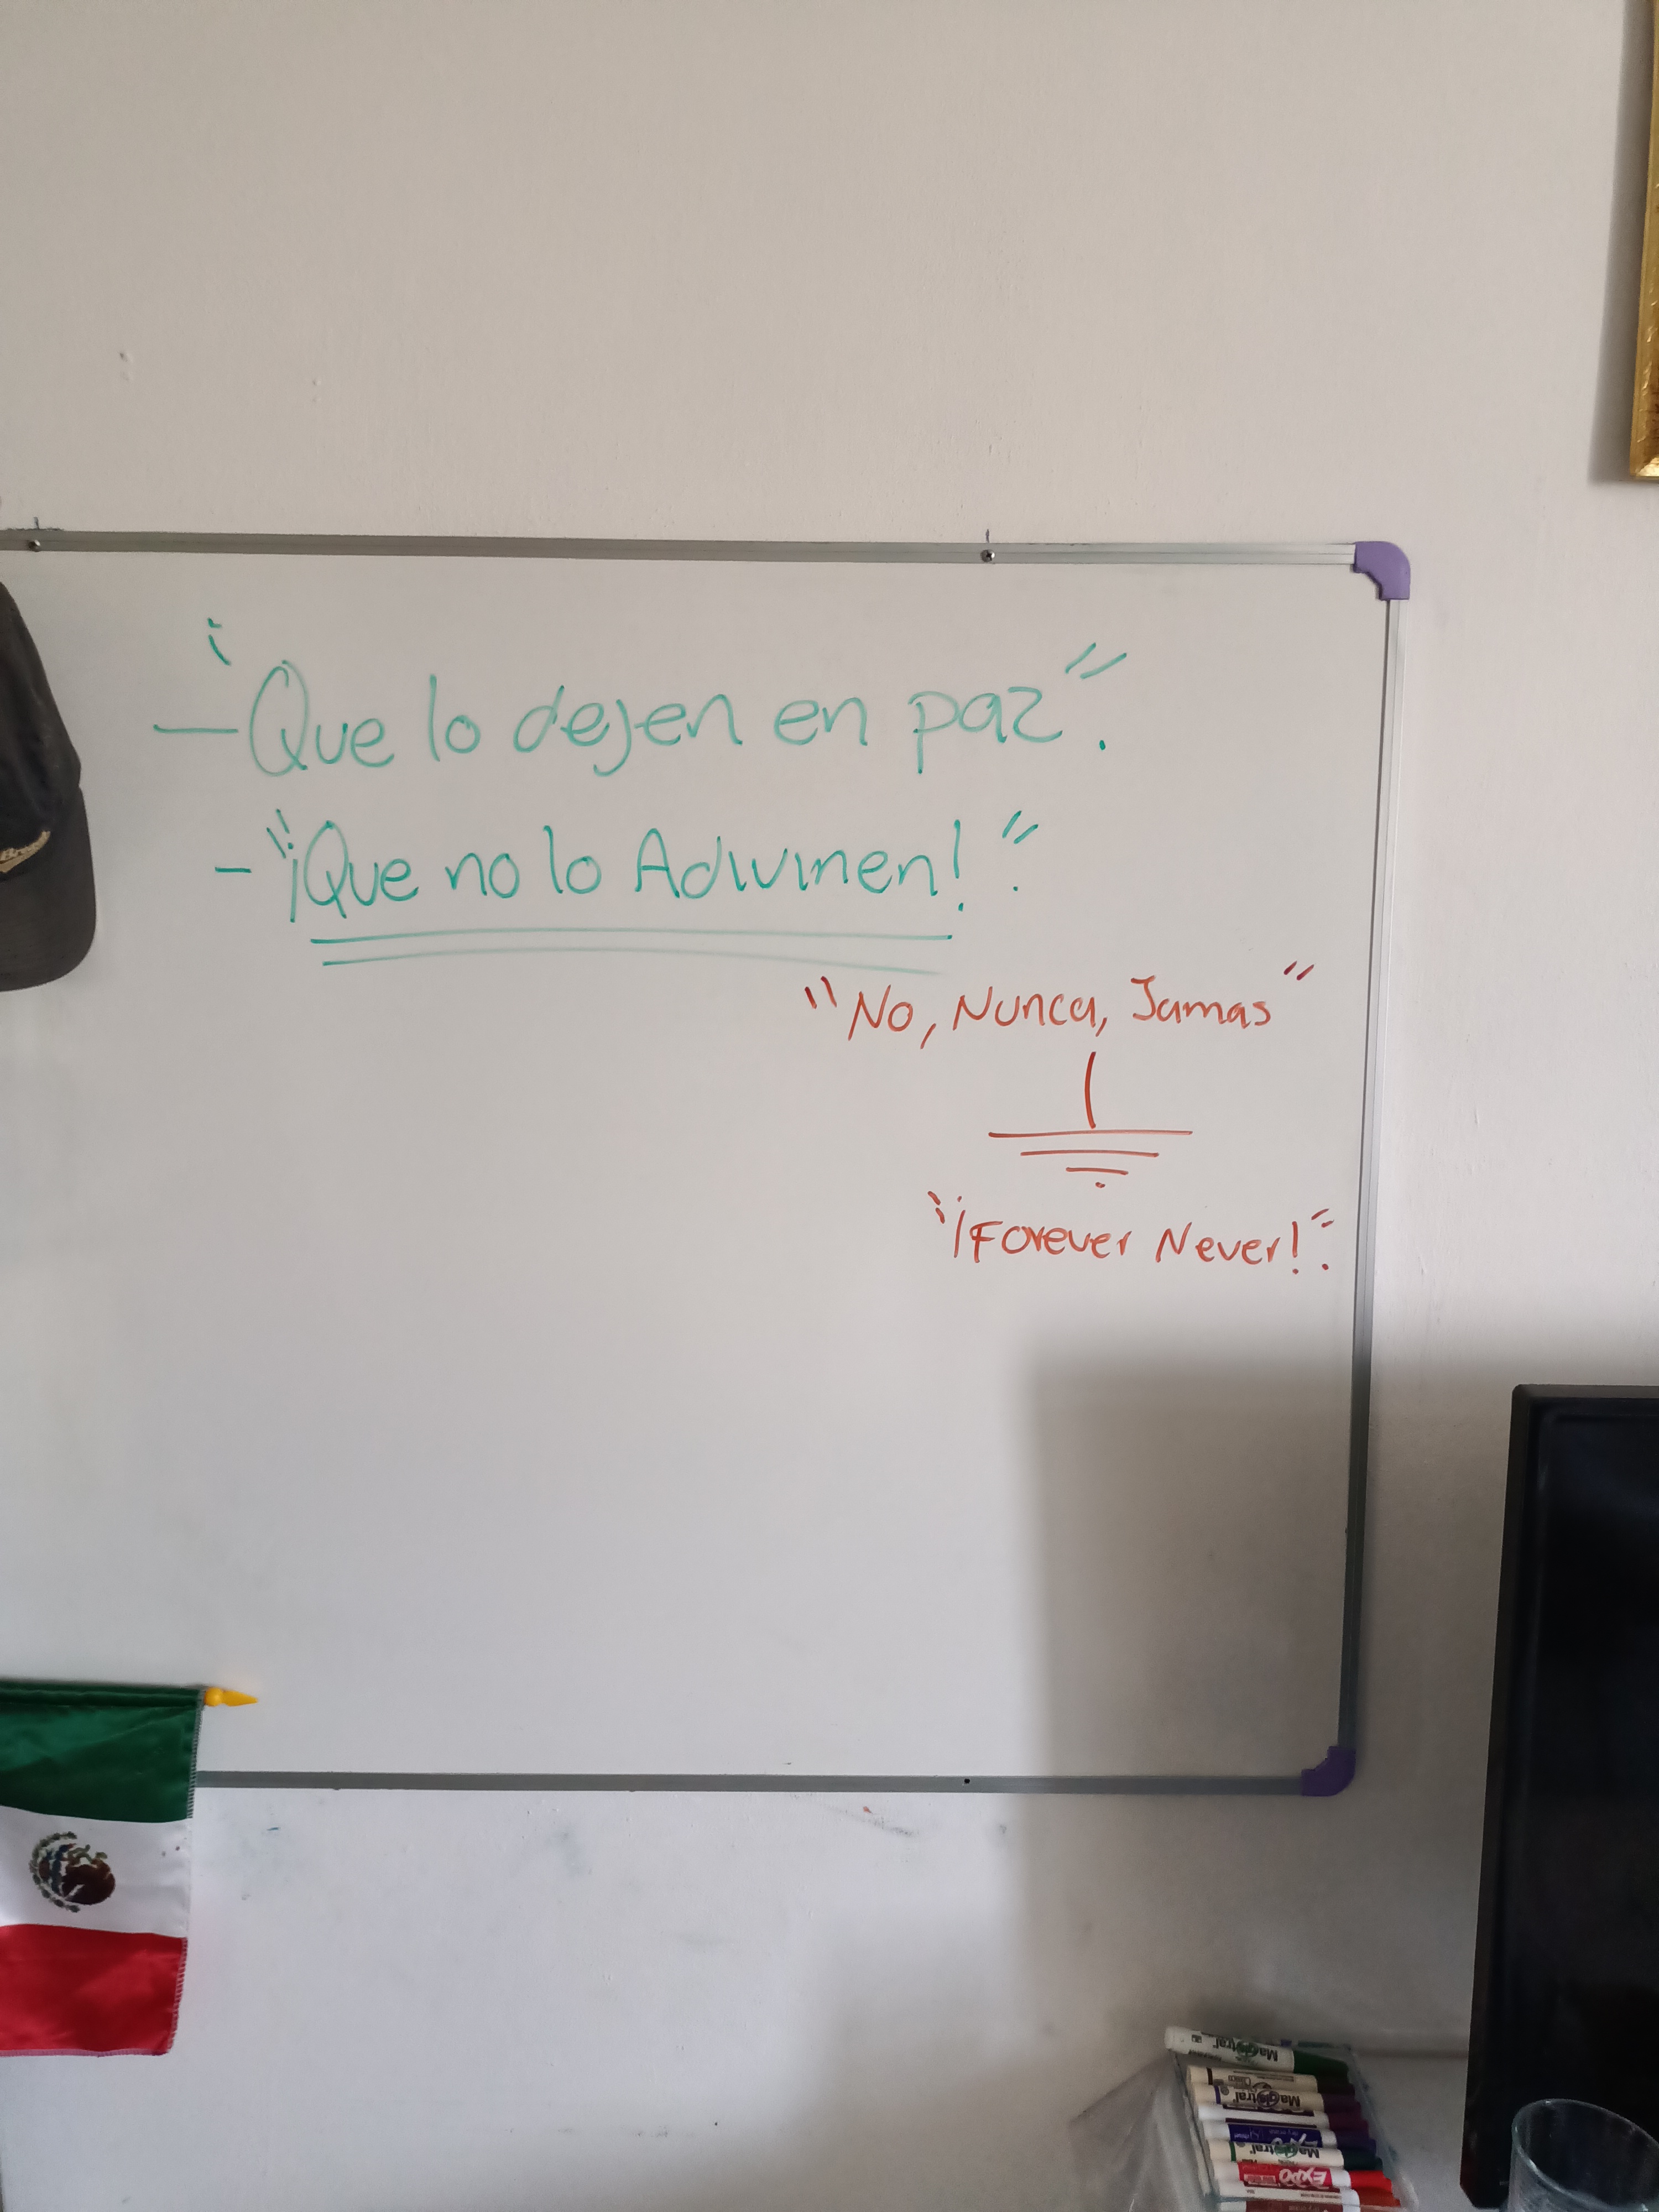 — "Que lo dejen en paz".
- "¡Que no lo Adivinen!".
"No, Nunca, Jamas"
"¡Forever Never!".
Magistral
Magistral
Magistral
EXPO